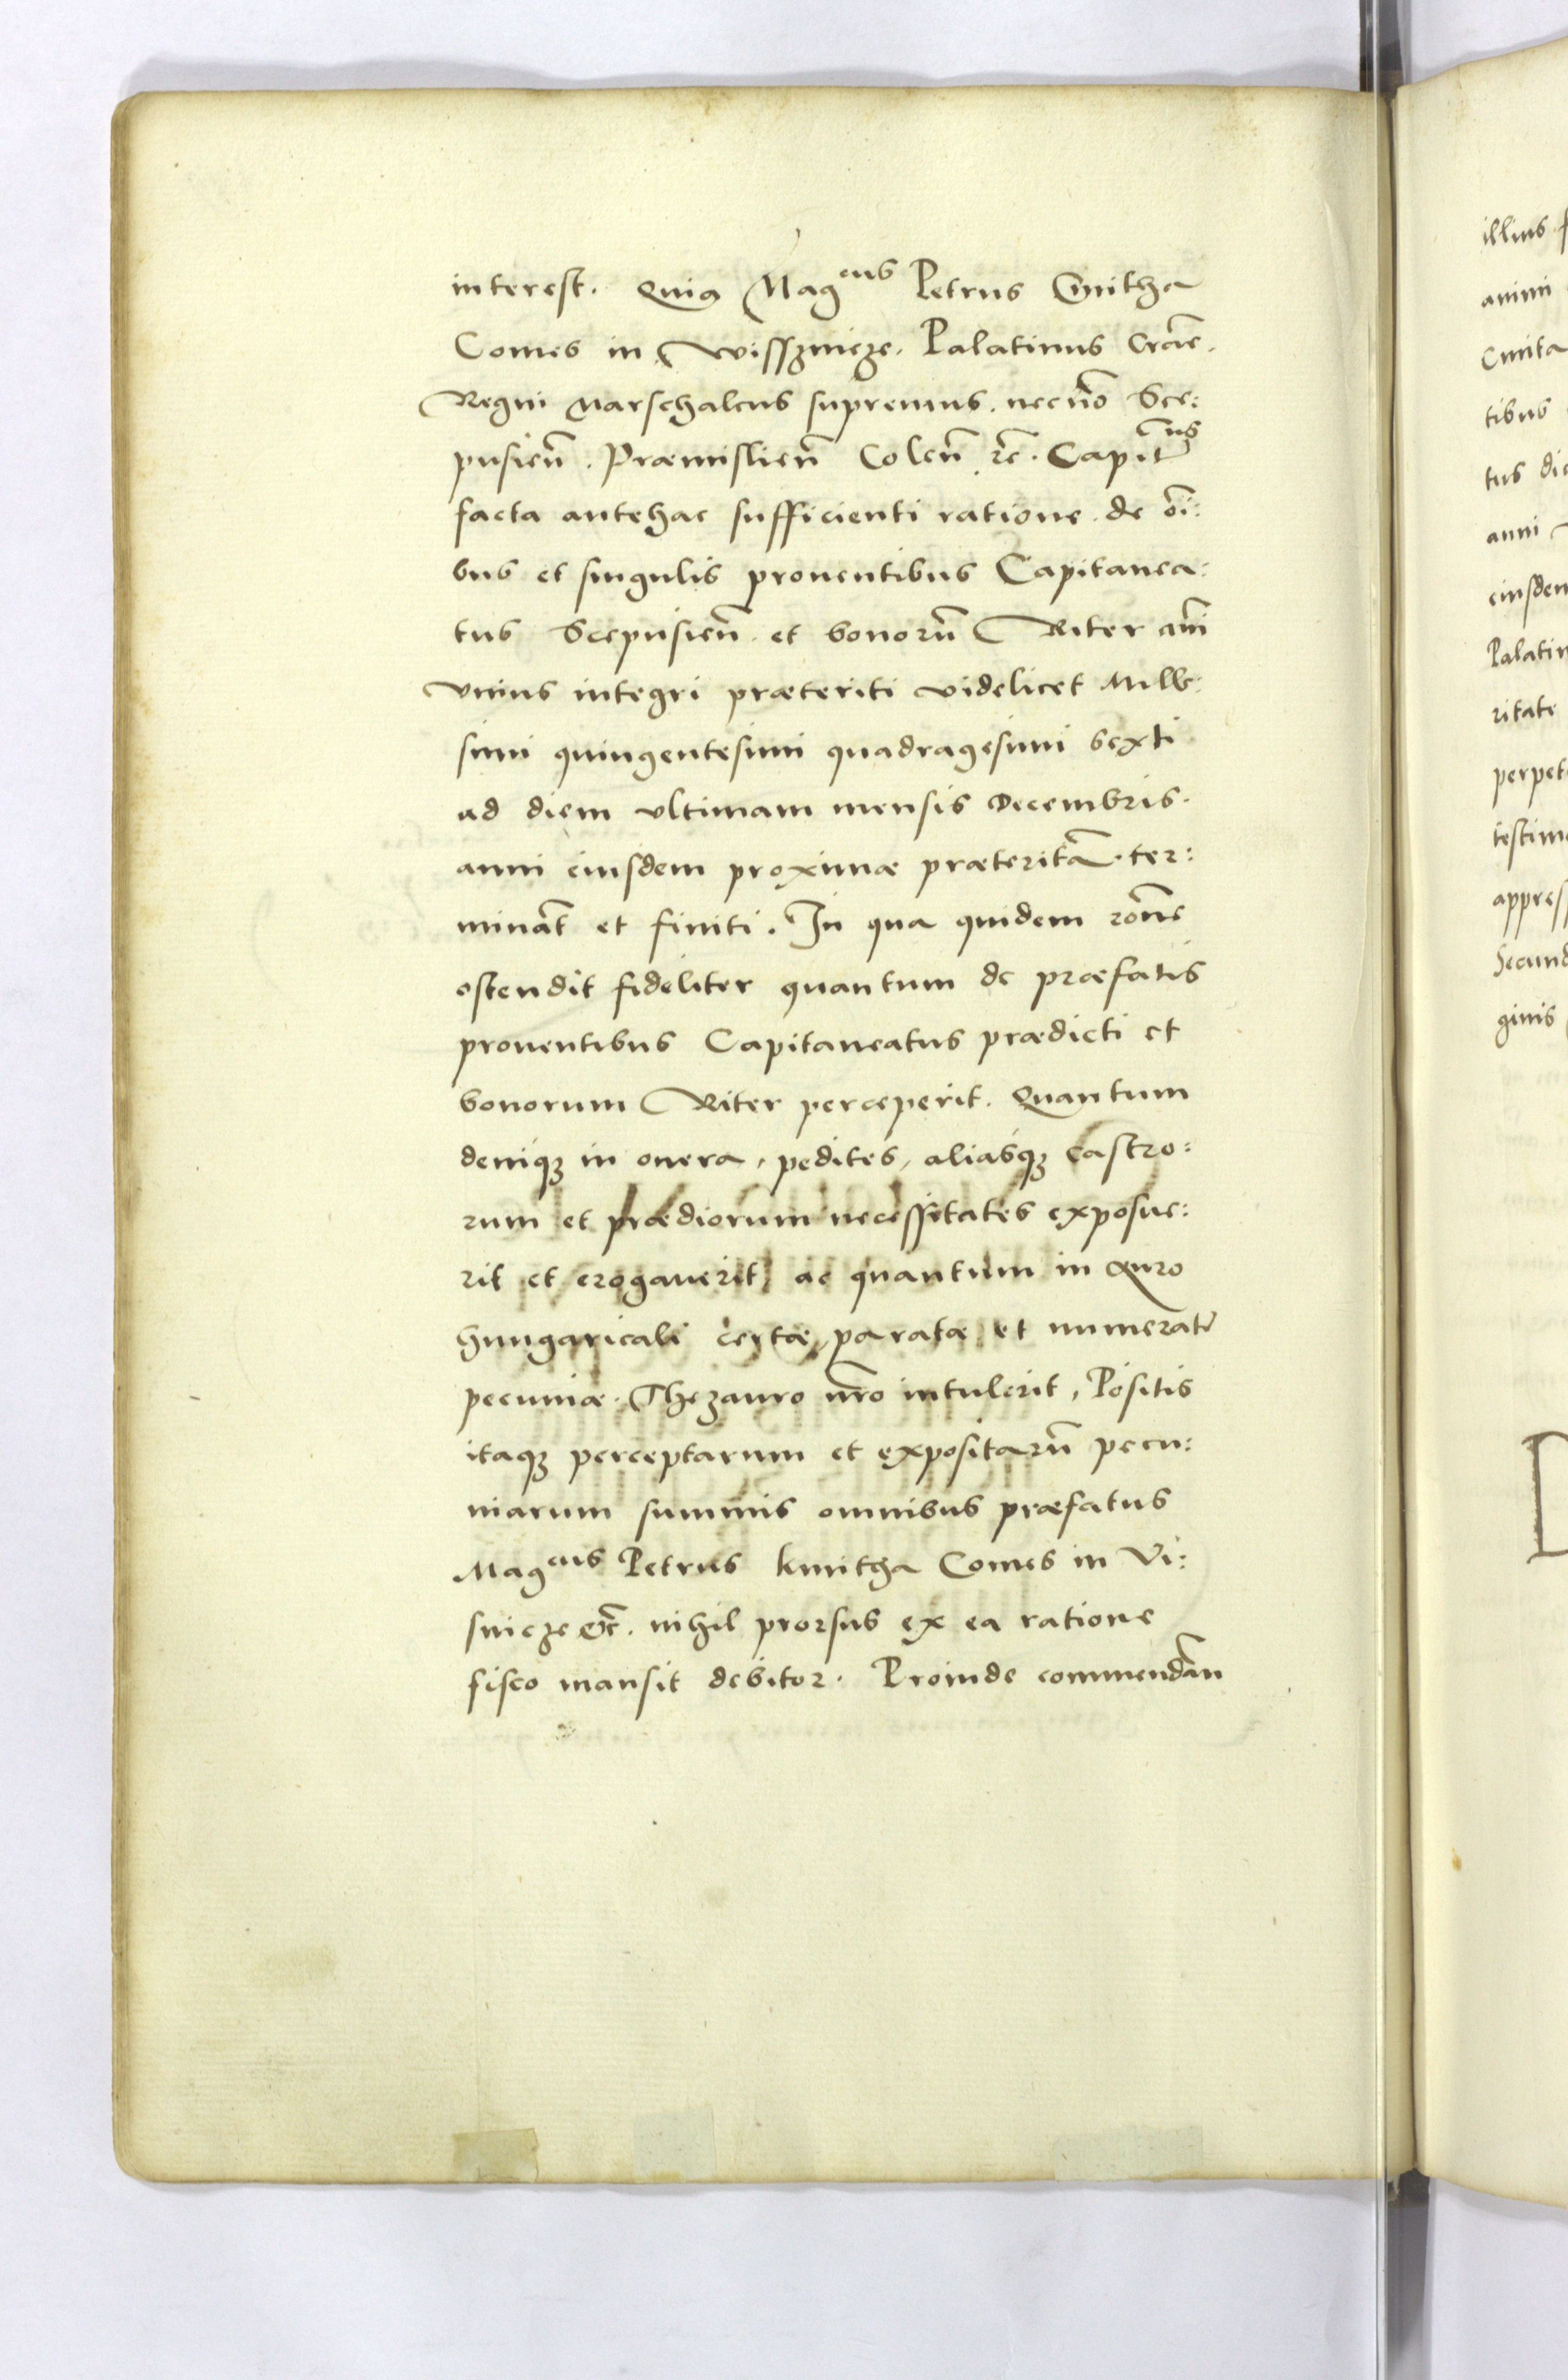 interest. Quia Mag^cus Petrus Cmitha
Comes in Wissznicze. Palatinus Crac̄.
Regni Marschalcus supremus. necnō Sce:
pusieñ. Præmislieñ Coleñ rc̄. Capit^us
facta antehac sufficienti ratione. de ōi:
bus et singulis prouentibus Capitanea:
tus Scepusieñ. et bonorū Riter añi
vnius integri præteriti videlicet Mille:
simi quingentesimi quadragesimi sexti
ad diem vltimam mensis Decembris.
anni eiusdem proximæ præteritā. ter:
minat̄ et finiti. In qua quidem rōne
ostendit fideliter quantum de præfatis
prouentibus Capitaneatus prædicti et
bonorum Riter perceperit. Quantum
deniqꝫ in onera, pedites, aliasqꝫ castro:
rum et prædiorum necessitates exposue:
rit et erogauerit, ac quantum in auro
hungaricali certæ, paratæ et numerat̄
pecuniæ. Thezauro nr̄o intulerit, Positis
itaqꝫ perceptarum et expositarū pecu:
niarum summis omnibus præfatus
Mag^cus Petrus kmitha Comes in Vi:
snicze &c̄. nihil prorsus ex ea ratione
fisco mansit debitor. Proinde commendān
illius
animi
Cmita
tibus
tus
anni
eiusdem
Palatin
ritate
perpet
testimo
appress
Secund
ginis